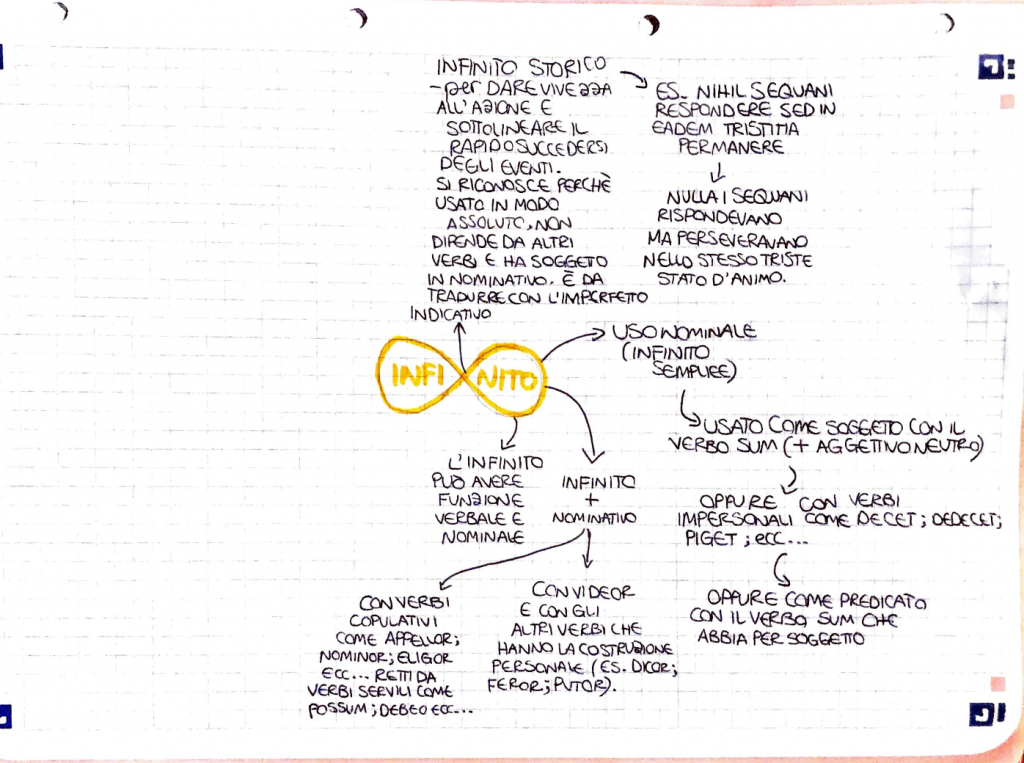 INFINITO STORICO
- per DARE VIVEZZA
ALL'AZIONE E
SOTTOLINEARE IL
RAPIDO SUCCEDERSI
DEGLI EVENTI.
SI RICONOSCE PERCHÈ
USATO IN MODO
ASSOLUTO, NON
DIPENDE DA ALTRI
VERBI E HA SOGGETO
IN NOMINATIVO. È DA
TRADURRE CON L'IMPERFETTO
INDICATIVO
ES. NIHIL SEQUANI
RESPONDERE SED IN
EADEM TRISTITIA
PERMANERE
NULLA I SEQUANI
RISPONDEVANO
MA PERSEVERAVANO
NELLO STESSO TRISTE
STATO D'ANIMO.
INFINITO
USO NOMINALE
(INFINITO
SEMPLICE)
USATO COME SOGGETO CON IL
VERBO SUM (+ AGGETIVO NEUTRO)
OPPURE CON VERBI
IMPERSONALI COME DECET; DEDECET;
PIGET; ECC...
OPPURE COME PREDICATO
CON IL VERBO SUM CHE
ABBIA PER SOGGETTO
L'INFINITO
PUÒ AVERE
FUNZIONE
VERBALE E
NOMINALE
INFINITO
+
NOMINATIVO
CON VERBI
COPULATIVI
COME APPELLOR;
NOMINOR; ELIGOR
ECC... RETTI DA
VERBI SERVILI COME
POSSUM; DEBEO ECC...
CON VIDEOR
E CON GLI
ALTRI VERBI CHE
HANNO LA COSTRUZIONE
PERSONALE (ES. DICOR;
FEROR; PUTOR).